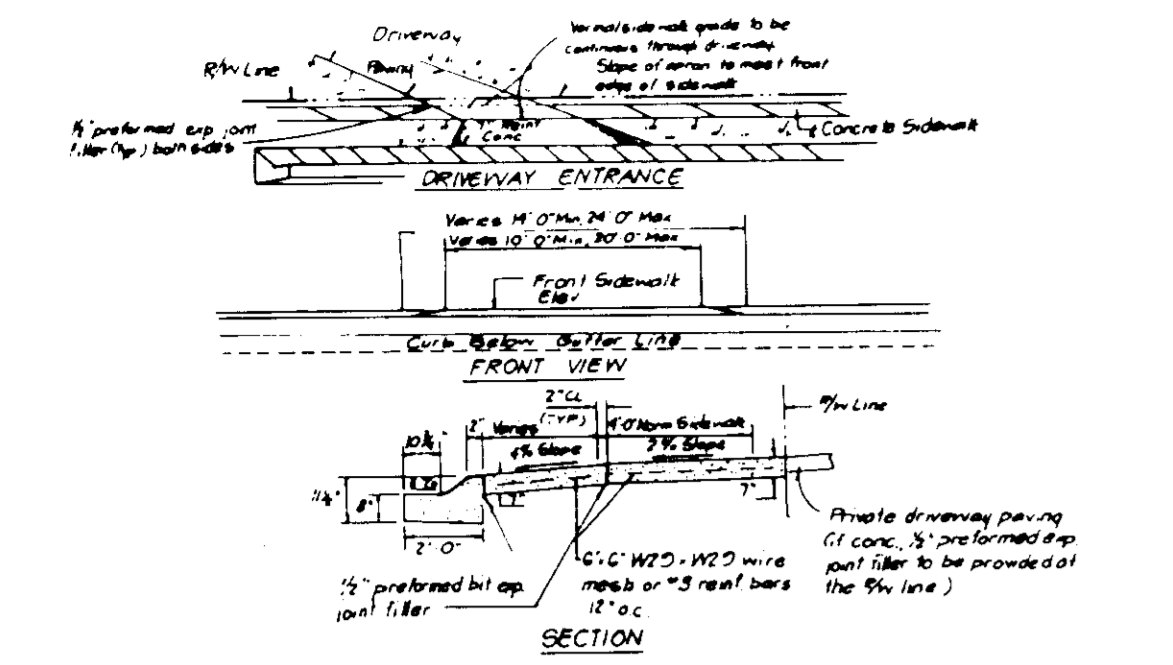 Driveway
Paving
R/W Line
Normal sidewalk grade to be
continuous through driveway
Slope of apron to meet front
edge of sidewalk
½" preformed exp joint
filler (typ.) both sides
7" Reinf
Conc
Concrete Sidewalk
DRIVEWAY ENTRANCE
Varies 14'0" Min, 24'0" Max
Varies 10'0" Min, 20'0" Max
Front Sidewalk
Elev
Curb Below Gutter Line
FRONT VIEW
2" CL
(TYP)
R/W Line
2" Varies
4'0" Norm Sidewalk
4% Slope
2% Slope
8"
7"
7"
2'0"
Private driveway paving
(if conc., ½" preformed exp.
joint filler to be provded at
the R/W line)
½" preformed bit exp.
joint filler
6"x6" W2.9 x W2.9 wire
mesh or #3 reinf bars
12" o.c.
SECTION